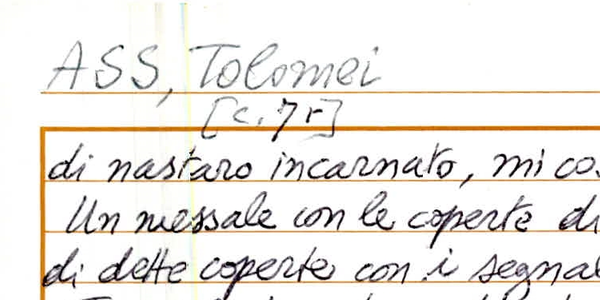 ASS, Tolomei
[c. 7r]
di nastaro incarnato, mi co
Un messale con le coperte di
di dette coperte con i segnal